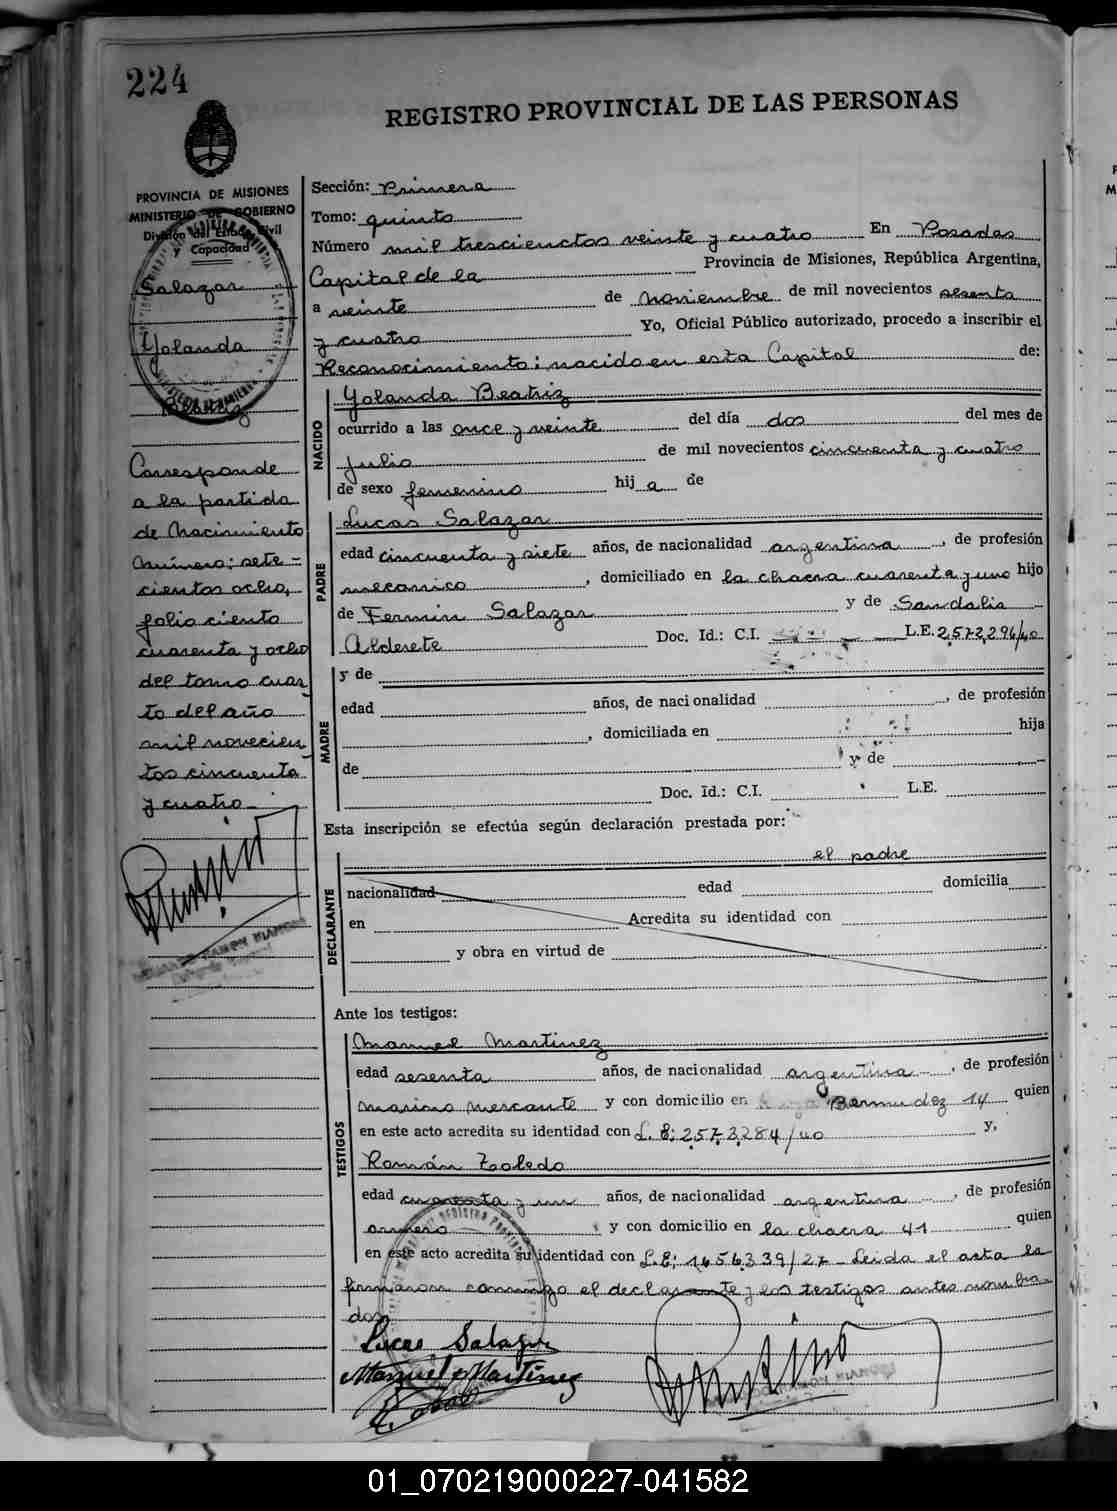 224
REGISTRO PROVINCIAL DE LAS PERSONAS
PROVINCIA DE MISIONES
MINISTERIO DE GOBIERNO
División del Estado Civil
y Capacidad
Salazar
Yolanda
Beatriz
Corresponde
a la partida
de Nacimiento
número: sete-
cientos ocho,
folio ciento
cuarenta y ocho
del tomo cuar
to del año
mil novecien
tos cincuenta
y cuatro
Sección: Primera
Tomo: quinto
Número mil trescienctos veinte y cuatro En Posadas
Capital de la Provincia de Misiones, República Argentina,
a veinte de noviembre de mil novecientos sesenta
y cuatro Yo, Oficial Público autorizado, procedo a inscribir el
Reconocimiento: nacido en esta Capital de:
NACIDO
Yolanda Beatriz
ocurrido a las once y veinte del día dos del mes de
Julio de mil novecientos cincuenta y cuatro
de sexo femenino hij a de
PADRE
Lucas Salazar
edad cincuenta y siete años, de nacionalidad argentina, de profesión
mecanico, domiciliado en la chacra cuarenta y uno hijo
de Fermin Salazar y de Sandalia
Alderete Doc. Id.: C.I. L.E. 2,572,296/40
MADRE
y de
edad años, de nacionalidad , de profesión
, domiciliada en hija
de y de
Doc. Id.: C.I. L.E.
Esta inscripción se efectúa según declaración prestada por:
DECLARANTE
el padre
nacionalidad edad domicilia
en Acredita su identidad con
y obra en virtud de
Ante los testigos:
TESTIGOS
Manuel Martinez
edad sesenta años, de nacionalidad argentina, de profesión
marino mercante y con domicilio en Bermudez 14 quien
en este acto acredita su identidad con L.E: 2,573,284/40 y,
Román Toledo
edad cuarenta y un años, de nacionalidad argentina, de profesión
armero y con domicilio en la chacra 41 quien
en este acto acredita su identidad con L.E: 1656339/27 Leida el acta la
firmaron conmigo el declarante y los testigos antes nombra-
dos
Lucas Salazar
Manuel Martinez
01_070219000227-041582